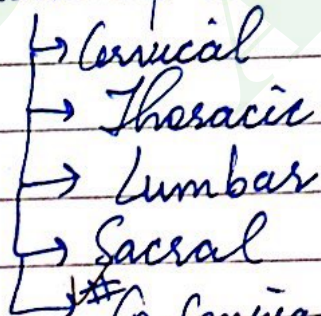 → Cervical
→ Thoracic
→ Lumbar
→ Sacral